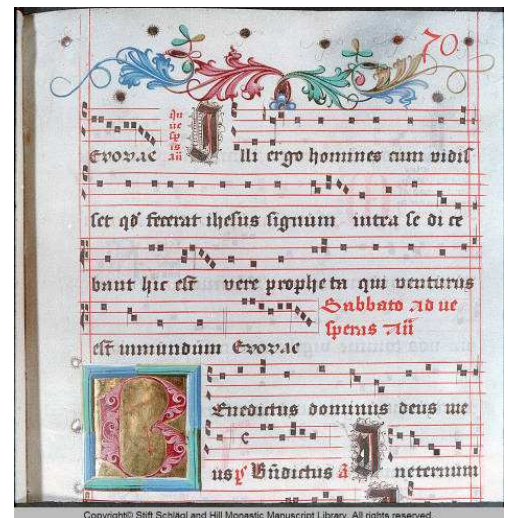 70
Evovae In ve spis aň Illi ergo homines cum vidis
set qď fecerat ihesus signum intra se di ce
bant hic est vere propheta qui venturus
est inmundum Evovae Sabbato ad ve
speras Añ
Benedictus dominus deus me
us ꝟ Bñdictus ã In eternum
Copyright© Stift Schlägl and Hill Monastic Manuscript Library. All rights reserved.